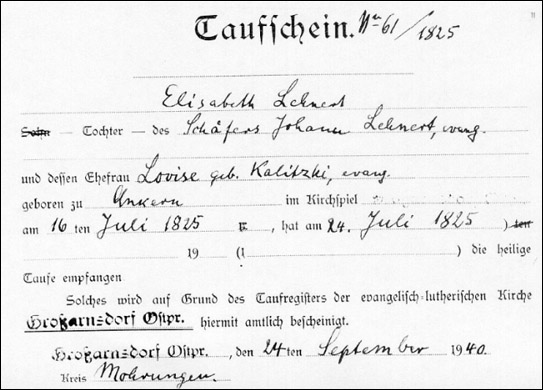 Taufschein. Nr 61/1825
Elisabeth Lehnert
Sohn — Tochter — des Schäfers Johann Lehnert, evang.
und dessen Ehefrau Lovise geb. Kalitzki, evang.
geboren zu Ankern im Kirchspiel
am 16 ten Juli 1825, hat am 24. Juli 1825) ten
19 (1 ) die heilige
Taufe empfangen
Solches wird auf Grund des Taufregisters der evangelisch-lutherischen Kirche
Großarnsdorf Ostpr. hiermit amtlich bescheinigt.
Großarnsdorf Ostpr., den 24ten September 1940.
Kreis Mohrungen.